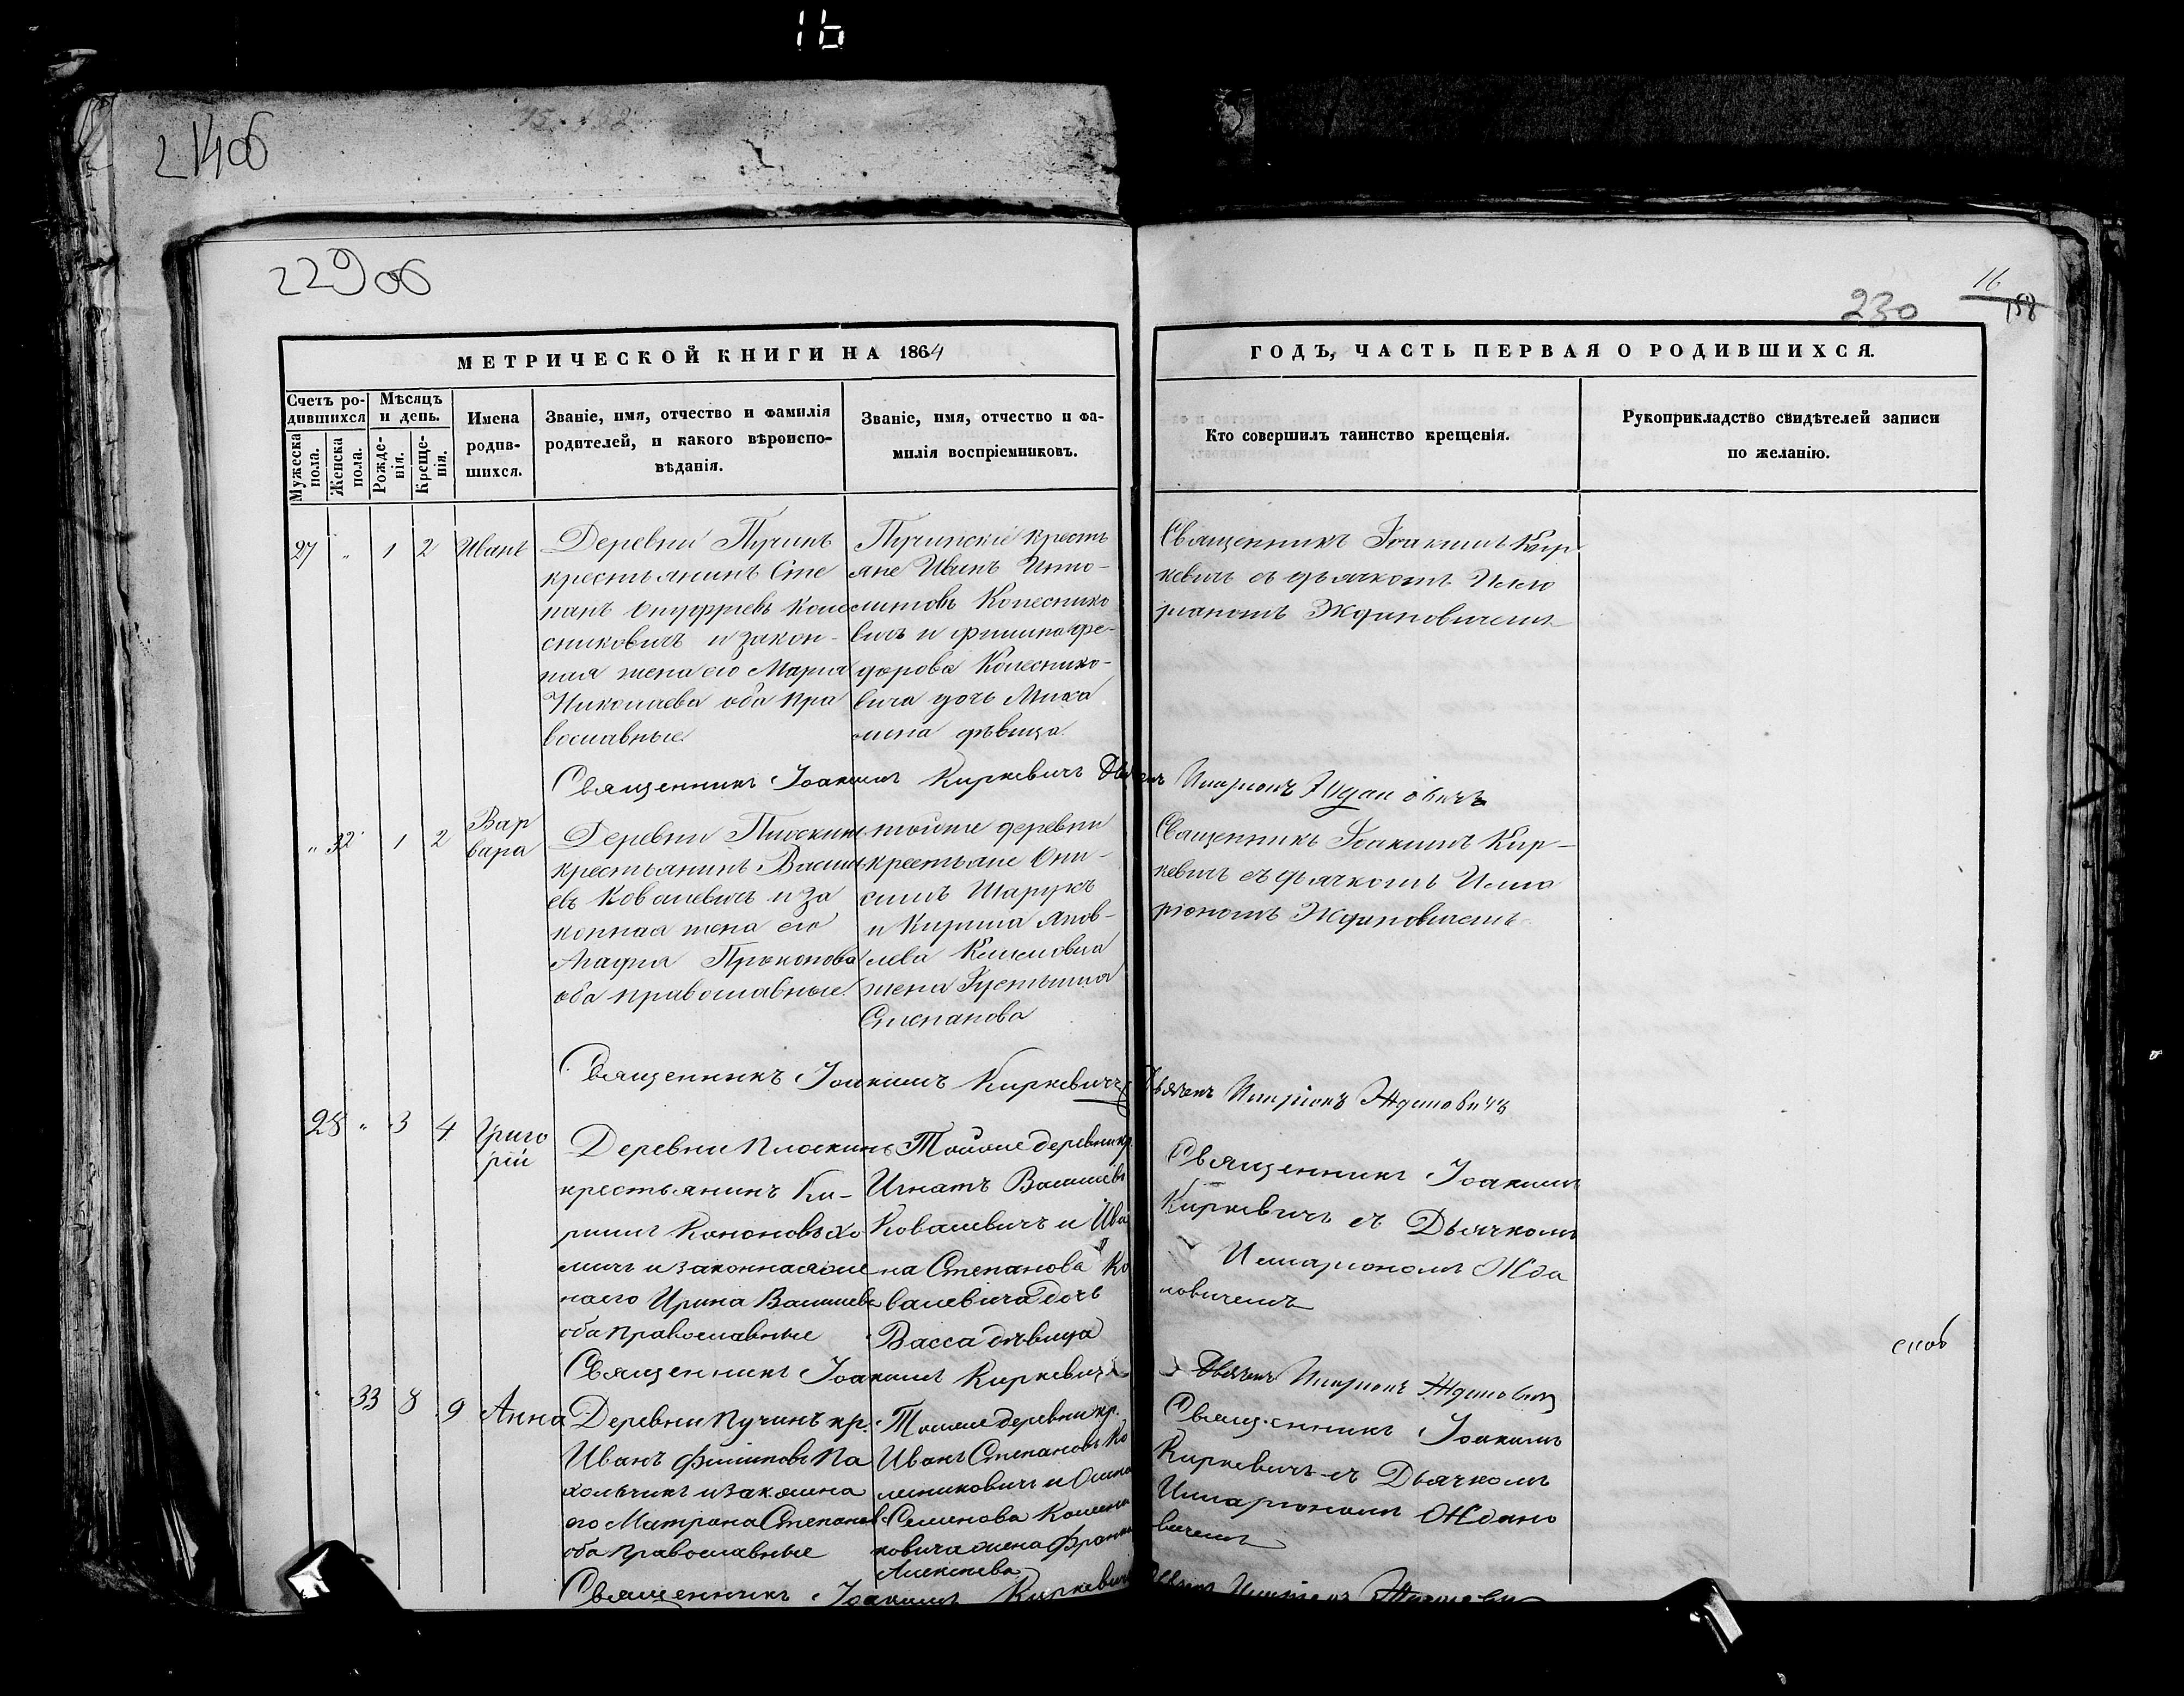 16
214об
229об
230
16
158
МЕТРИЧЕСКОЙ КНИГИ НА 1864
ГОДЪ, ЧАСТЬ ПЕРВАЯ О РОДИВШИХСЯ.
Счетъ родившихся
Мужеска пола.
Женска пола.
Мѣсяцъ и день.
Рожденія.
Крещенія.
Имена родившихся.
Званіе, имя, отчество и фамилія
родителей, и какого вѣроиспо-
вѣданія.
Званіе, имя, отчество и фа-
милія воспріемниковъ.
Кто совершилъ таинство крещенія.
Рукоприкладство свидѣтелей записи
по желанію.
27 " 1 2 Иванъ
Деревни Пучинъ
крестьянинъ Сте
панъ Онуфріевъ Коле
сниковичъ и закон-
ная жена его Марія
Николаева оба пра
вославные
Пучинскіе кресть
яне Иванъ
Колеснико
вичъ и Филипа Фе-
дорова Колеснико-
вича дочь
дѣвица
Священникъ Іоакимъ Кир
кевичъ съ дьячкомъ Илла
ріономъ Ждановичемъ
Священникъ Іоакимъ Киркевичъ Дьячекъ Иларіонъ Ждановичъ
" 32 1 2 Вар
вара
Деревни Плоскинь
крестьянинъ Васил
евъ Ковалевичъ и за
конная жена его
Агафія Прокопова
оба православные.
тойже деревни
крестьяне Они-
симъ Шарукъ
и Кирила Яков-
лева
жена Іустинія
Степанова
Священникъ Іоакимъ Кир-
кевичъ съ дьячкомъ Илла
ріономъ Ждановичемъ
Священникъ Іоакимъ Киркевичъ Дьячекъ Иларіонъ Ждановичъ
28 " 3 4 Григо
рій
Деревни Плоскинь
крестьянинъ Ки-
рилъ Кононовъ Хо
мичъ и законная же
на его Ирина Васильева
оба православные
Тойже деревни кр.
Игнатъ Васильевъ
Ковалевичъ и Ива
на Степанова Ко
валевича дочь
Васса дѣвица
Священникъ Іоакимъ
Киркевичъ съ Дьячкомъ
Илларіономъ Жда
новичемъ
Священникъ Іоакимъ Киркевичъ Дьячекъ Иларіонъ Ждановичъ
скоб
" 33 8 9 Анна
Деревни Пучинъ кр.
Иванъ Филиповъ Па
хольчикъ и зак жена
его Матрона Степанов
оба православные
Тоже деревни кр.
Иванъ Степановъ Ко
лесниковичъ и
Семенова Колесни
ковича жена
Алексѣева
Священникъ Іоакимъ
Киркевичъ съ Дьячкомъ
Илларіономъ Ждано
вичемъ
Священникъ Іоакимъ Киркевичъ Дьячекъ Иларіонъ